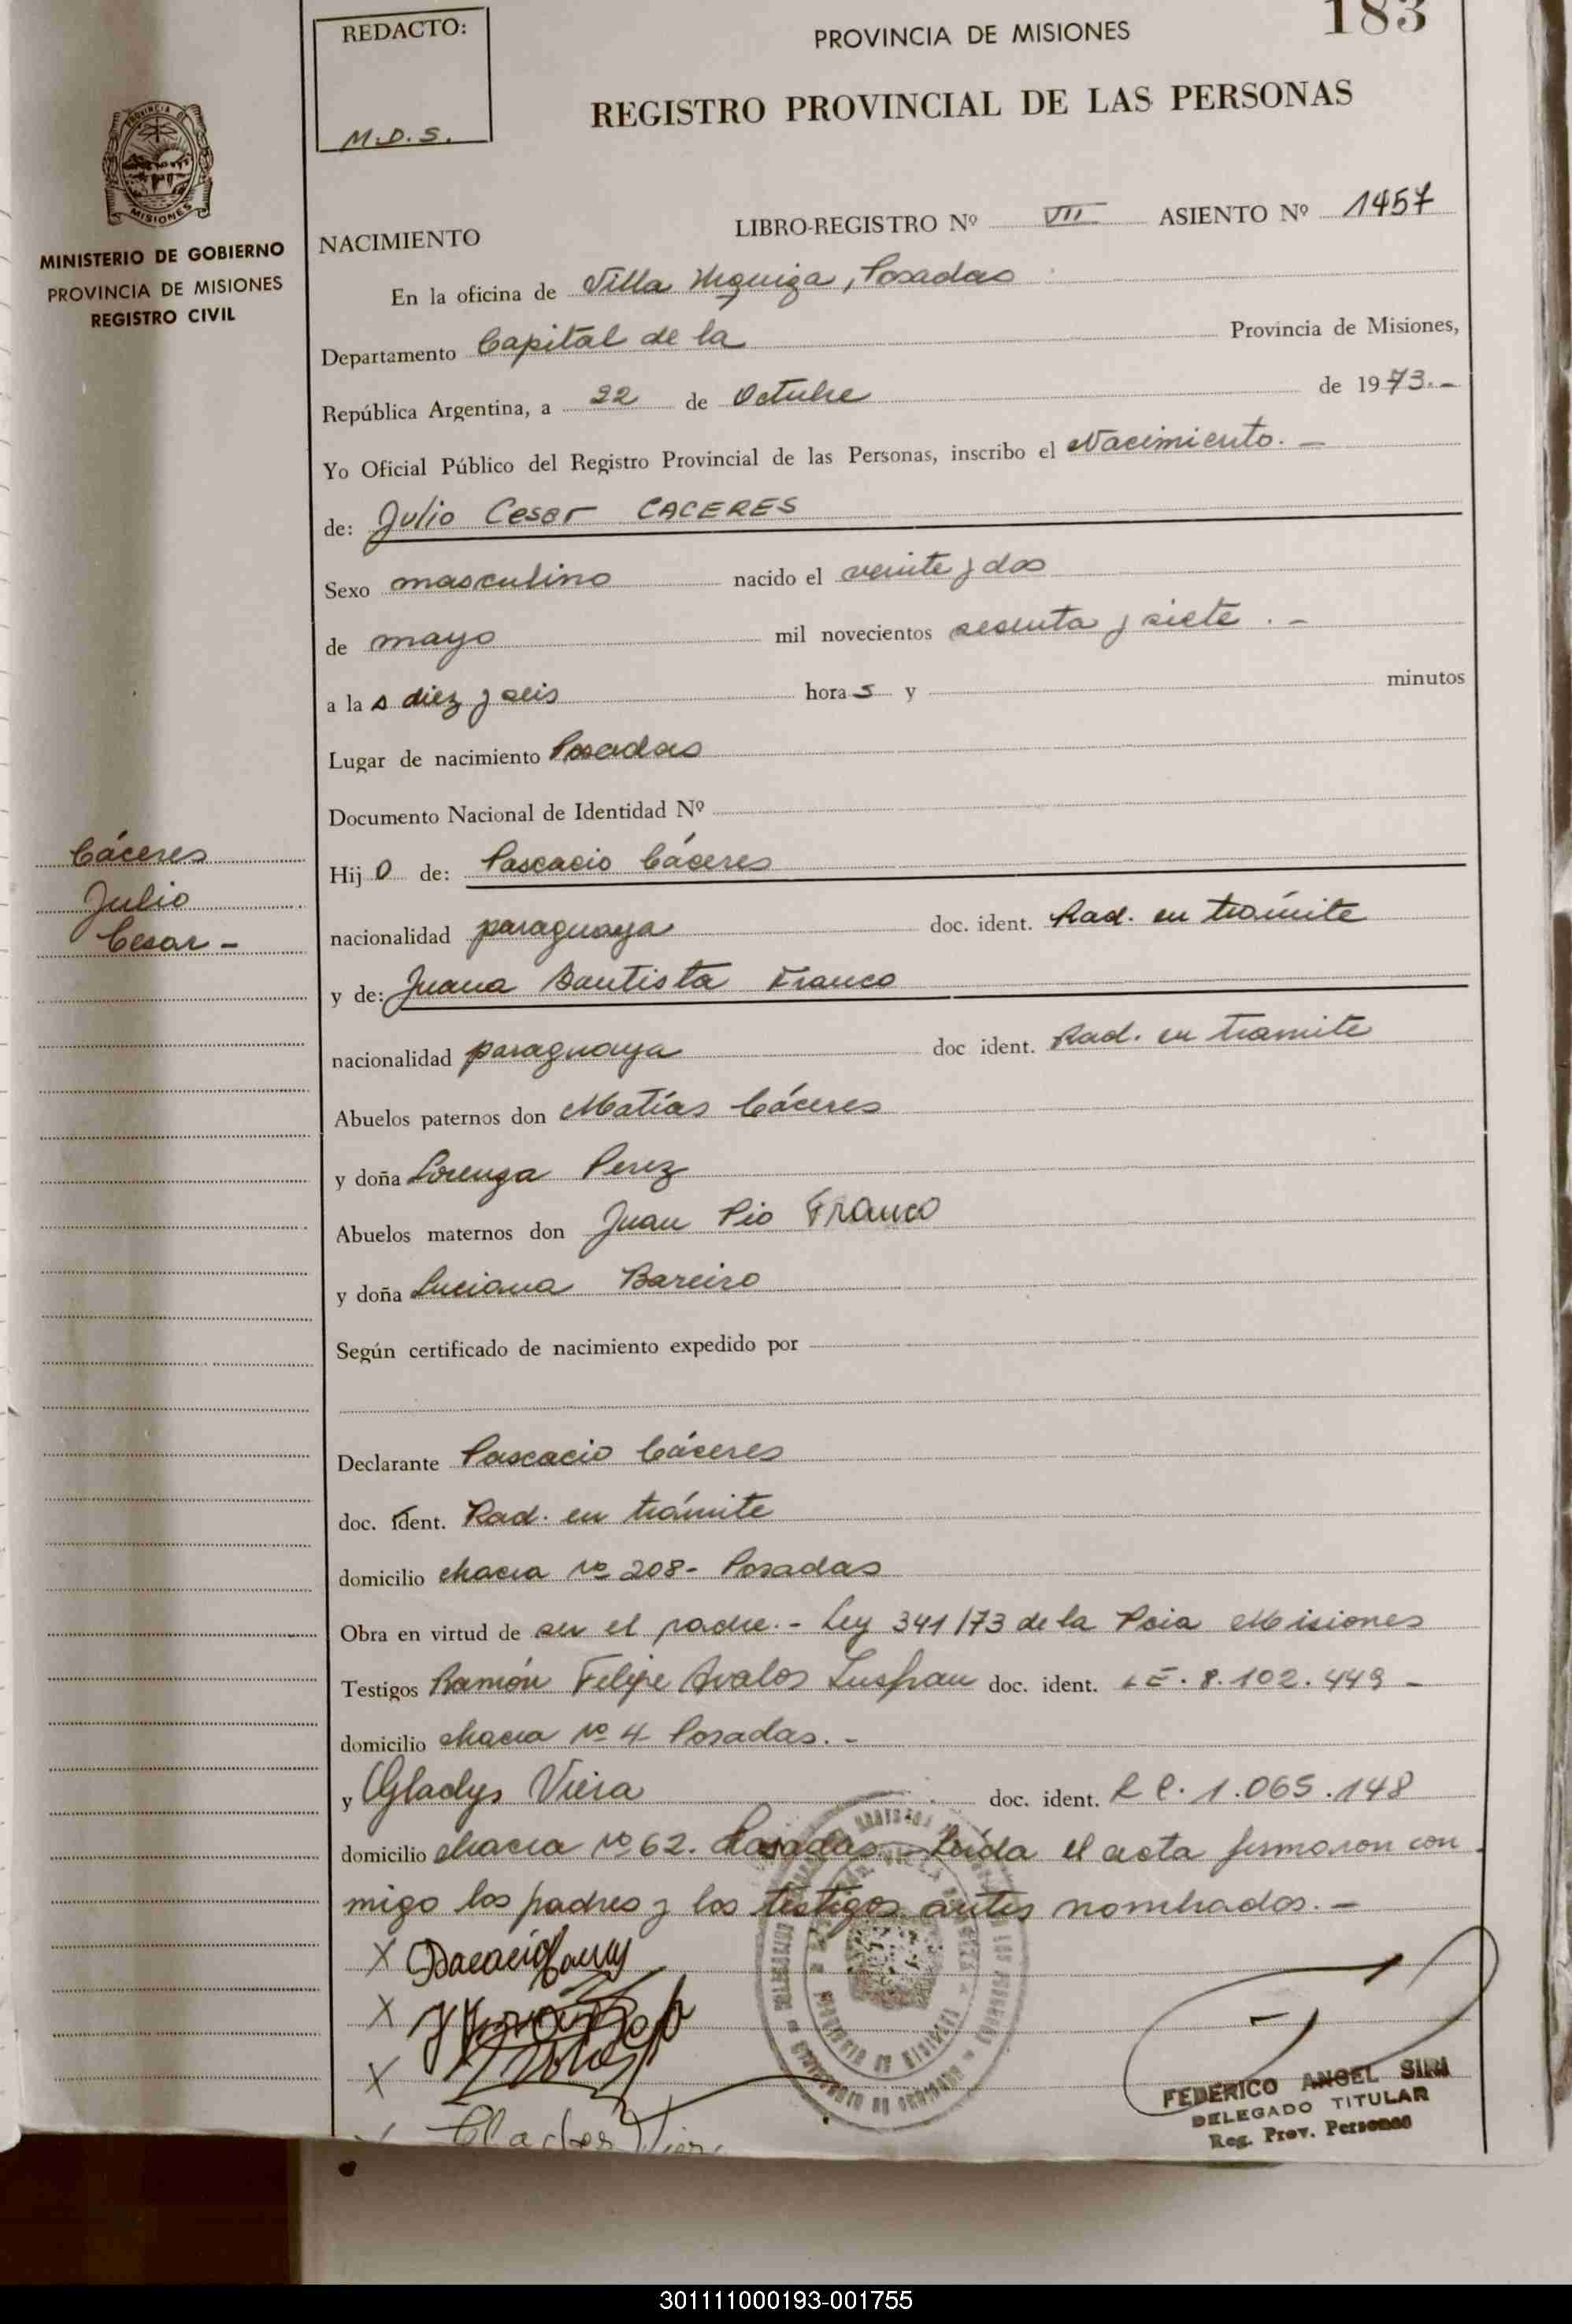 183
REDACTO:
M.D.S.
PROVINCIA DE MISIONES
REGISTRO PROVINCIAL DE LAS PERSONAS
PROVINCIA DE
MISIONES
MINISTERIO DE GOBIERNO
PROVINCIA DE MISIONES
REGISTRO CIVIL
NACIMIENTO LIBRO-REGISTRO Nº VII ASIENTO Nº 1457
En la oficina de Villa Urquiza, Posadas
Departamento Capital de la Provincia de Misiones,
República Argentina, a 22 de Octubre de 1973.-
Yo Oficial Público del Registro Provincial de las Personas, inscribo el Nacimiento.-
de: Julio Cesar CACERES
Sexo masculino nacido el veinte y dos
de mayo mil novecientos sesenta y siete.-
a las diez y seis horas y minutos
Lugar de nacimiento Posadas
Documento Nacional de Identidad Nº
Cáceres
Julio
Cesar -
Hijo de: Pascacio Cáceres
nacionalidad paraguaya doc. ident. Rad. en trámite
y de: Juana Bautista Franco
nacionalidad paraguaya doc ident. Rad. en tramite
Abuelos paternos don Matías Cáceres
y doña Lorenza Perez
Abuelos maternos don Juan Pio Franco
y doña Luciana Bareiro
Según certificado de nacimiento expedido por
Declarante Pascacio Cáceres
doc. ident. Rad. en trámite
domicilio chacra nº 208- Posadas
Obra en virtud de ser el padre.- Ley 341/73 de la Pcia Misiones
Testigos Ramón Felipe Avalos doc. ident. LE. 8.102.449 -
domicilio chacra nº 4 Posadas.-
y Gladys Viera doc. ident. 1.065.148
domicilio chacra nº 62. Posadas.- Leída el acta firmaron con
migo los padres y los testigos antes nombrados.-
X
X
X
FEDERICO ANGEL SIRI
DELEGADO TITULAR
Reg. Prov. Personas
301111000193-001755